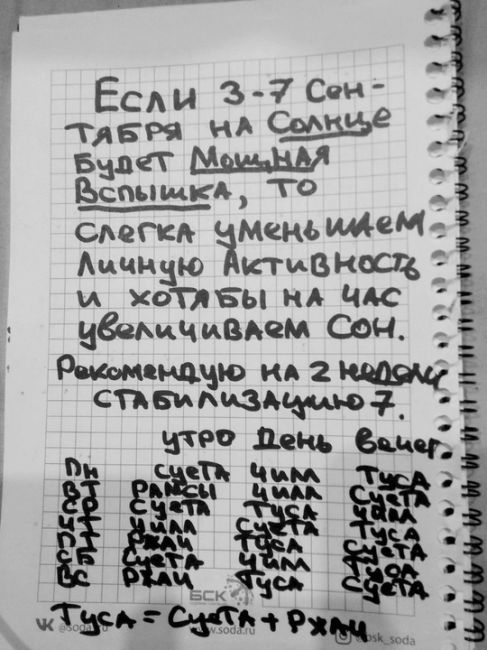 Если 3-7 Сен-
тября на Солнце
будет Мощная
Вспышка, то
слегка уменьшаем
личную активность
и хотябы на час
увеличиваем Сон.
Рекомендую на 2 недели
стабилизацию 7.
утро День вечер
Пн суета чилл Туса
Вт Рамсы чилл Суета
Ср Суета Туса чилл
Чт чилл Суета Туса
Пт Ржаи Туса Суета
Сб Суета чилл Туса
Вс Ржаи Туса Суета
БСК
Туса = Суета + Ржаи
@soda.ru www.soda.ru @bsk_soda